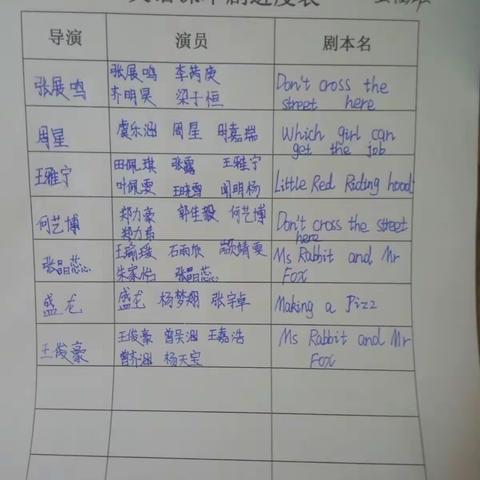 导演 演员 剧本名
张展鸣 张展鸣 李芮庚 Don't cross the
齐明昊 梁于恒 street here
周星 虞乐涵 周星 周嘉瑞 Which girl can
get the job
王雅宁 田佩琪 张露 王雅宁 Little Red Riding hood
叶佩雯 王晓雪 闻明杨
何艺博 郑力豪 郭生毅 何艺博 Don't cross the street
here
张晶蕊 石雨欣 Ms Rabbit and Mr
朱家怡 张晶蕊 Fox
盛龙 盛龙 杨梦翔 张宇卓 Making a Pizz
王俊豪 王俊豪 曾昊涵 王嘉浩 Ms Rabbit and Mr
曾齐涵 杨天宝 Fox